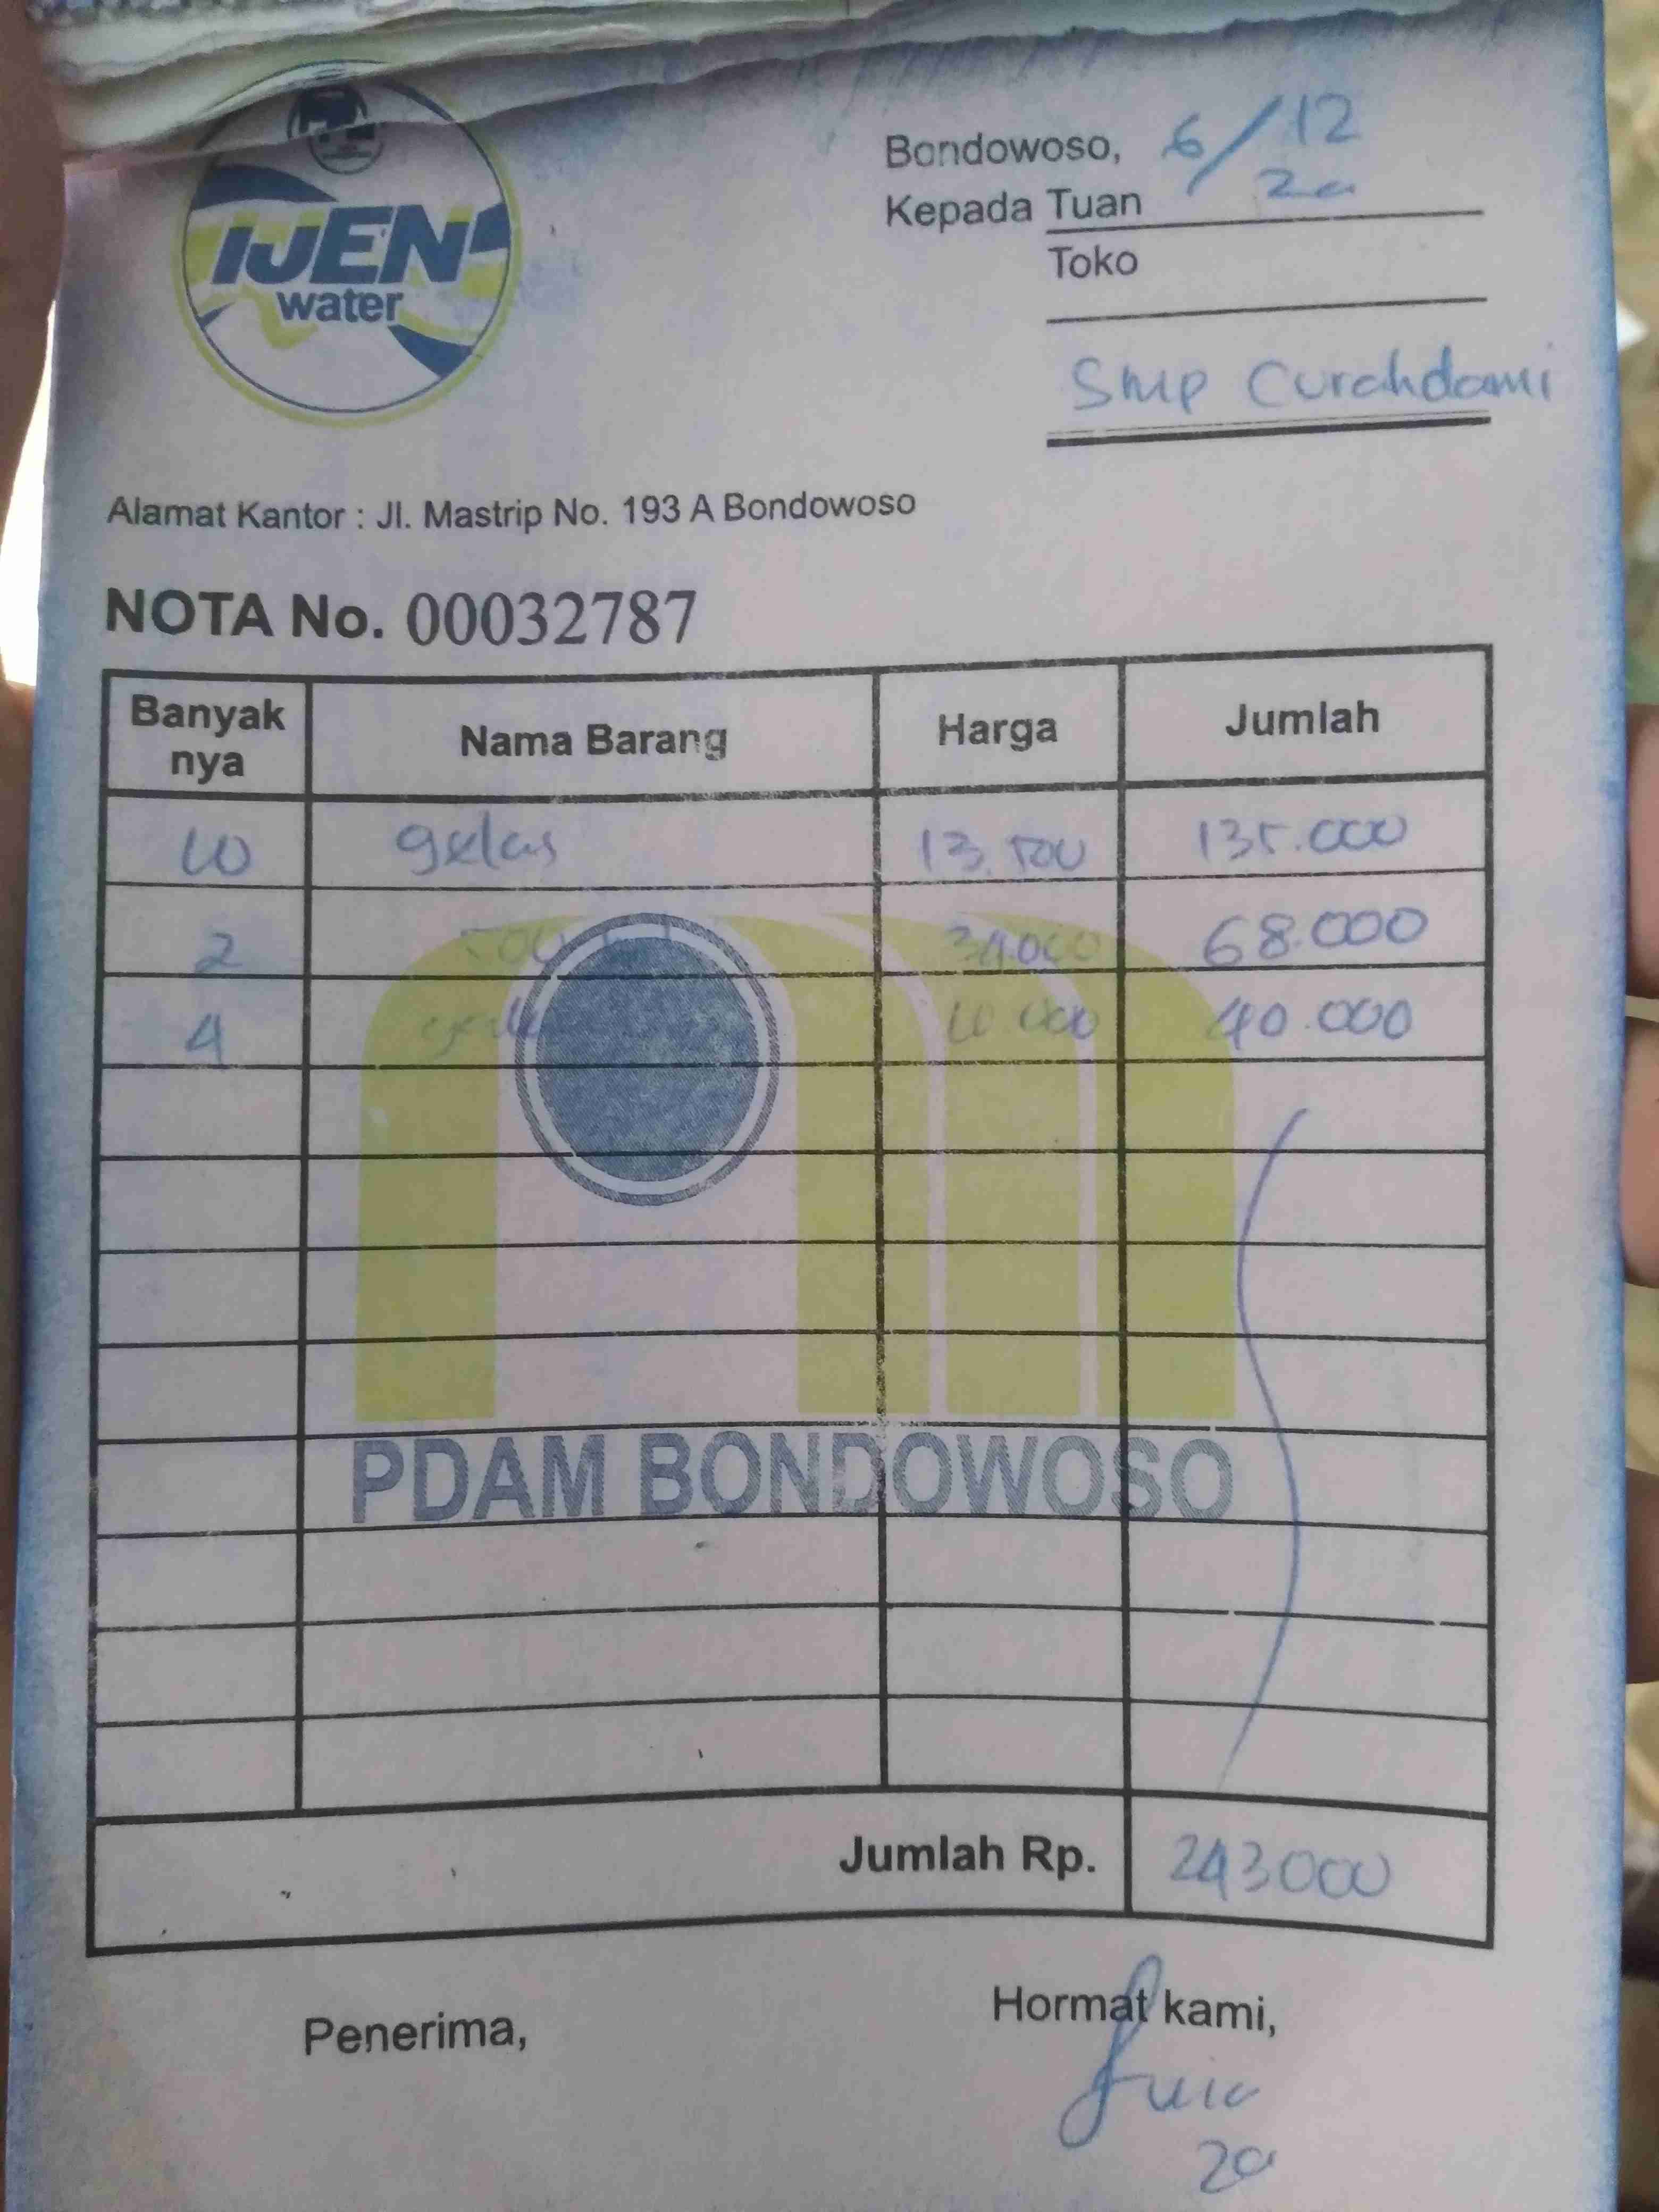 IJEN
water
Bondowoso, 6/12
Kepada Tuan 20
Toko
Smp Curahdami
Alamat Kantor : Jl. Mastrip No. 193 A Bondowoso
NOTA No. 00032787
Banyak nya Nama Barang Harga Jumlah
10 gelas 13.500 135.000
2 500 ml 34.000 68.000
4 10.000 40.000
PDAM BONDOWOSO
Jumlah Rp. 243000
Penerima, Hormat kami,
20